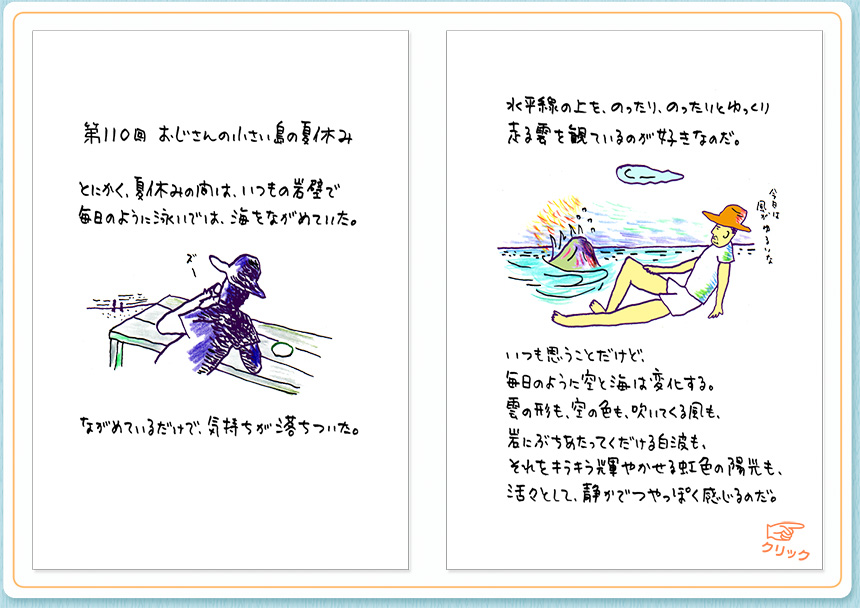 第110回 おじさんの小さい島の夏休み
とにかく、夏休みの間は、いつもの岩壁で
毎日のように泳いでは、海をながめていた。
ズー
ながめているだけで、気持ちが落ちついた。
水平線の上を、のったり、のったりとゆっくり
走る雲を観ているのが好きなのだ。
今日は
風がゆるいな
いつも思うことだけど、
毎日のように空と海は変化する。
雲の形も、空の色も、吹いてくる風も、
岩にぶちあたってくだける白波も、
それをキラキラ輝やかせる虹色の陽光も、
活々として、静かでつやっぽく感じるのだ。
クリック